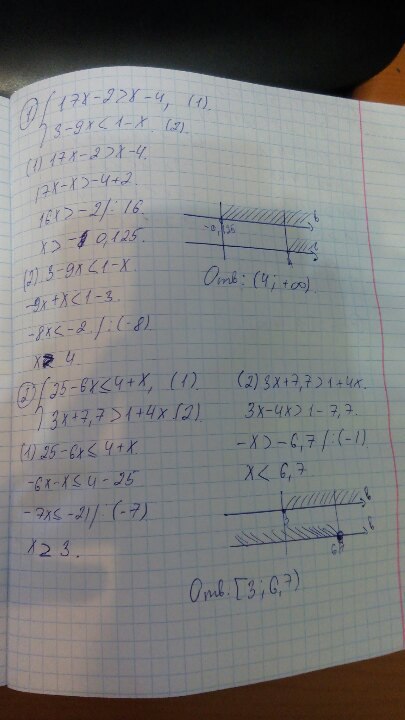 1) { 17x-2>x-4, (1).
3-9x<1-x. (2)
(1) 17x-2>x-4.
17x-x>-4+2.
16x>-2/:16.
x>-0,125.
-0,125
4
Отв: (4;+∞).
(2) 3-9x<1-x
-9x+x<1-3.
-8x<-2 /:(-8)
x> 4
2) { 25-6x≤4+x, (1)
3x+7,7>1+4x (2)
(1) 25-6x≤4+x
-6x-x≤4-25
-7x≤-21/:(-7)
x≥3.
(2) 3x+7,7>1+4x.
3x-4x>1-7,7.
-x>-6,7 /:(-1)
x<6,7
3
6,7
Отв. [3;6,7)